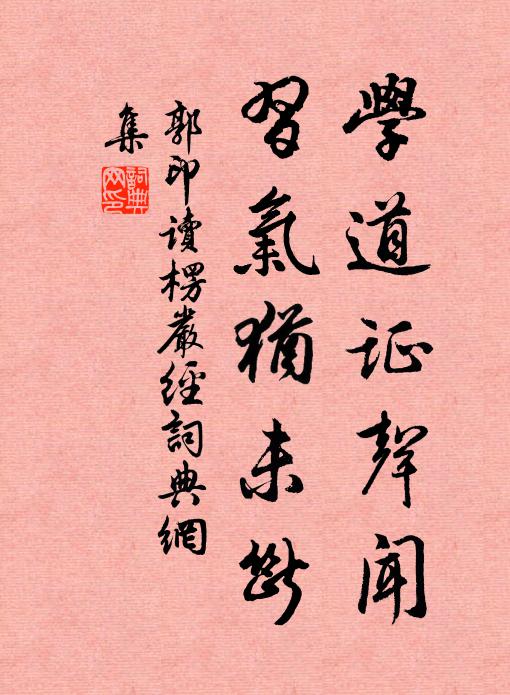 學道证聲聞
習氣猶未斷
郭印讀楞嚴經詞典網
集
詞典網印